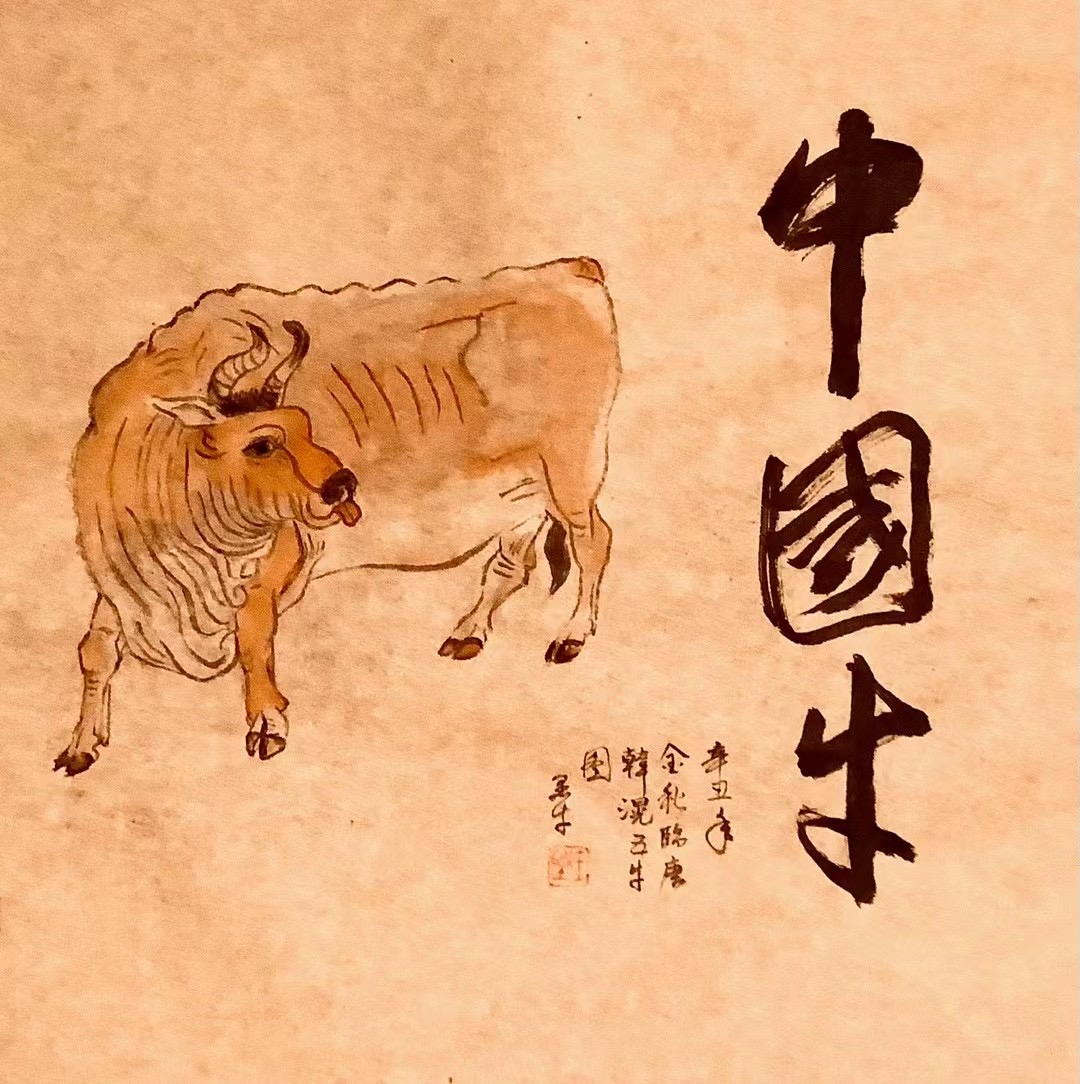 中國牛
辛丑年
金秋臨唐
韓滉五牛
图
墨牛